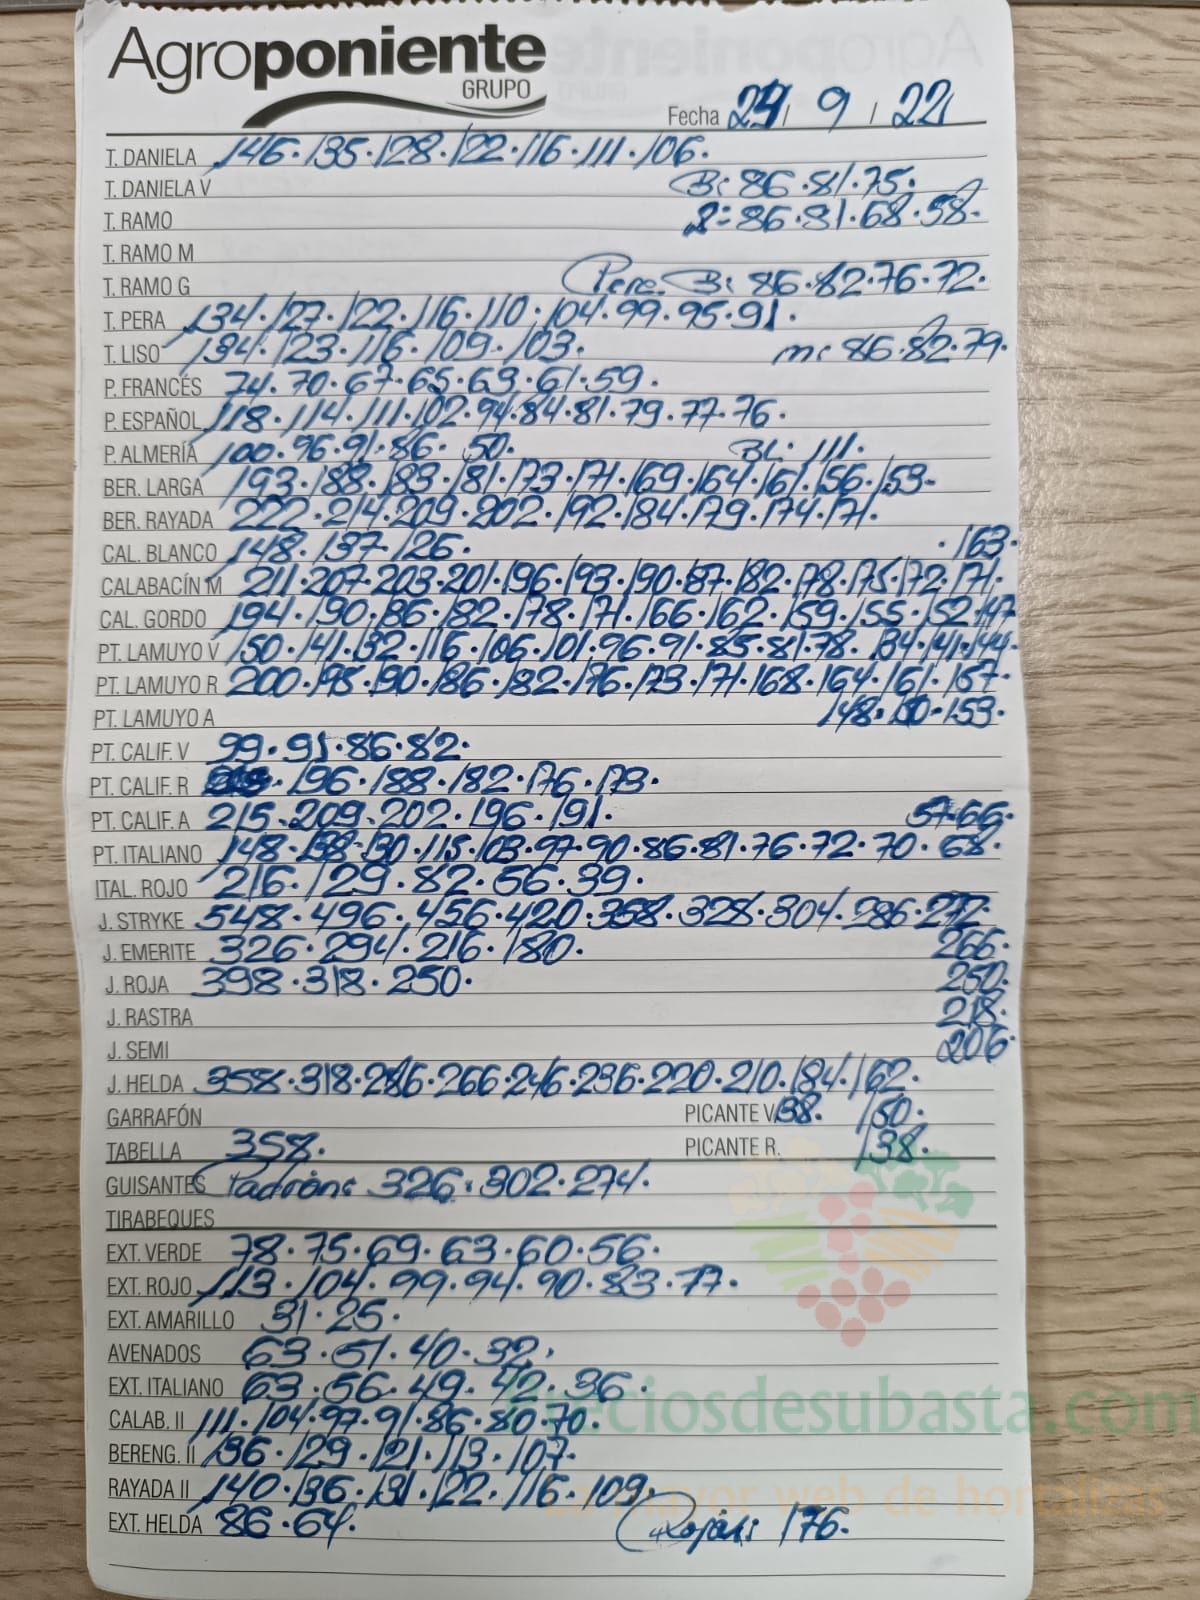 Agroponiente
GRUPO
Fecha 24 / 9 / 22
T. DANIELA 146. 135. 128. 122. 116. 111. 106.
T. DANELA V B: 86. 81. 75.
T. RAMO 2: 86. 81. 68. 58.
T. RAMO M
T. RAMO G Pera. B: 86. 82. 76. 72.
T. PERA 134. 127. 122. 116. 110. 104. 99. 95. 91.
T. LISO 134. 123. 116. 109. 103. m: 86. 82. 79.
P. FRANCÉS 74. 70. 67. 65. 63. 61. 59.
P. ESPAÑOL 118. 114. 111. 102. 94. 84. 81. 79. 77. 76.
P. ALMERÍA 100. 96. 91. 86. 50. BL: 111.
BER. LARGA 193. 188. 183. 181. 173. 171. 169. 164. 161. 156. 153-
BER. RAYADA 222. 214. 209. 202. 192. 184. 179. 174. 171.
CAL. BLANCO 148. 137. 126. . 163.
CALABACÍN M 211. 207. 203. 201. 196. 193. 190. 87. 182. 178. 175. 172. 171.
CAL. GORDO 194. 190. 86. 182. 178. 171. 166. 162. 159. 155. 152. 147
PT. LAMUYO V 150. 141. 132. 116. 106. 101. 96. 91. 85. 81. 78. 134. 141. 144.
PT. LAMUYO R 200. 195. 190. 186. 182. 176. 173. 171. 168. 164. 161. 157.
PT. LAMUYO A 148. 153.
PT. CALIF. V 99. 91. 86. 82.
PT. CALIF. R 196. 188. 182. 176. 173.
PT. CALIF. A 215. 209. 202. 196. 191. 57. 66.
PT. ITALIANO 148. 138. 130. 115. 103. 97. 90. 86. 81. 76. 72. 70. 68.
ITAL. ROJO 216. 129. 82. 56. 39.
J. STRYKE 548. 496. 456. 420. 358. 328. 304. 286. 272.
J. EMERITE 326. 294. 216. 180. 266.
J. ROJA 398. 318. 250. 250.
J. RASTRA 218.
J. SEMI 206.
J. HELDA 358. 318. 286. 266. 246. 236. 220. 210. 184. 162.
GARRAFÓN PICANTE V 138. 150.
TABELLA 358. PICANTE R. 138.
GUISANTES Padrón: 326. 302. 274.
TIRABEQUES
EXT. VERDE 78. 75. 69. 63. 60. 56.
EXT. ROJO 113. 104. 99. 94. 90. 83. 77.
EXT. AMARILLO 31. 25.
AVENADOS 63. 51. 40. 32.
EXT. ITALIANO 63. 56. 49. 42. 36.
preciosdesubasta.com
CALAB. II 111. 104. 97. 91. 86. 80. 70.
BERENG. II 136. 129. 121. 113. 107.
RAYADA II 140. 136. 131. 122. 116. 109.
La mayor web de hortalizas
EXT. HELDA 86. 64. 176.